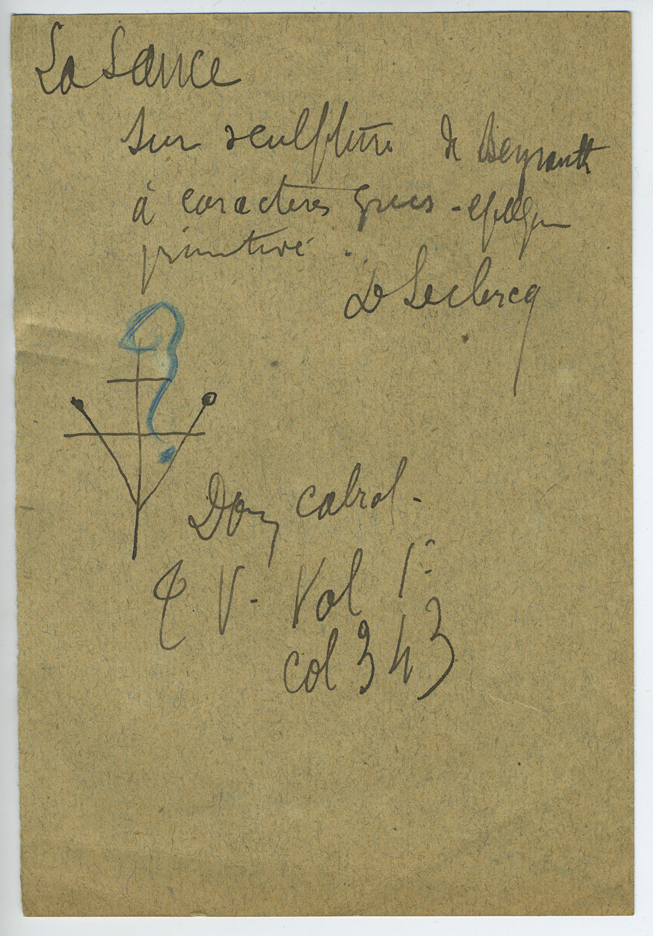 La Lance
sur sculpture de Beyrouth
à caractères grecs - époque
primitive
D Leclercq
Dom Cabrol.
T V. Vol 1º
col 343